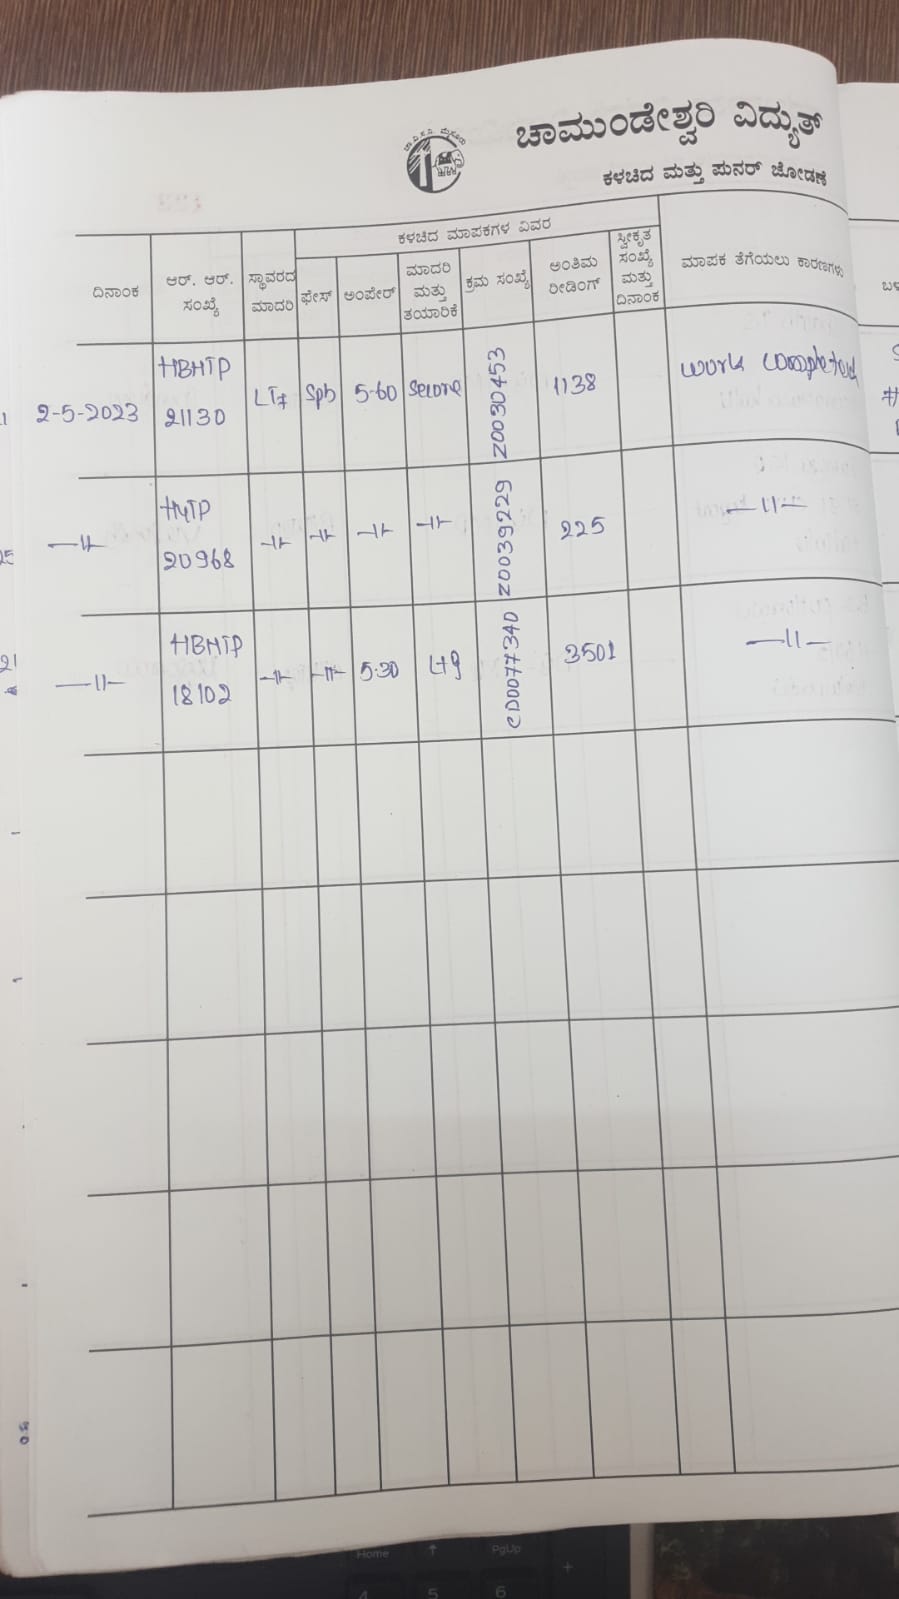 ಚಾ.ವಿ.ಸ.ನಿ. ಮೈಸೂರು
ಚಾಮುಂಡೇಶ್ವರಿ ವಿದ್ಯುತ್
ಕಳಚಿದ ಮತ್ತು ಪುನರ್ ಜೋಡಣೆ
ಕಳಚಿದ ಮಾಪಕಗಳ ವಿವರ
ದಿನಾಂಕ
ಆರ್. ಆರ್. ಸಂಖ್ಯೆ
ಸ್ಥಾವರದ ಮಾದರಿ
ಫೇಸ್
ಅಂಪೇರ್
ಮಾದರಿ ಮತ್ತು ತಯಾರಿಕೆ
ಕ್ರಮ ಸಂಖ್ಯೆ
ಅಂತಿಮ ರೀಡಿಂಗ್
ಸ್ವೀಕೃತ ಸಂಖ್ಯೆ ಮತ್ತು ದಿನಾಂಕ
ಮಾಪಕ ತೆಗೆಯಲು ಕಾರಣಗಳು
2-5-2023 HBHTP 21130 LT7 Sph 5-60 Secure Z0030453 1138 work completed
—11— 20968 —11— —11— —11— —11— Z0039229 225 —11—
—11— HBHTP 18102 —11— —11— 5-30 L+g CD0077340 3501 —11—
Home
PgUp
4 5 6 +